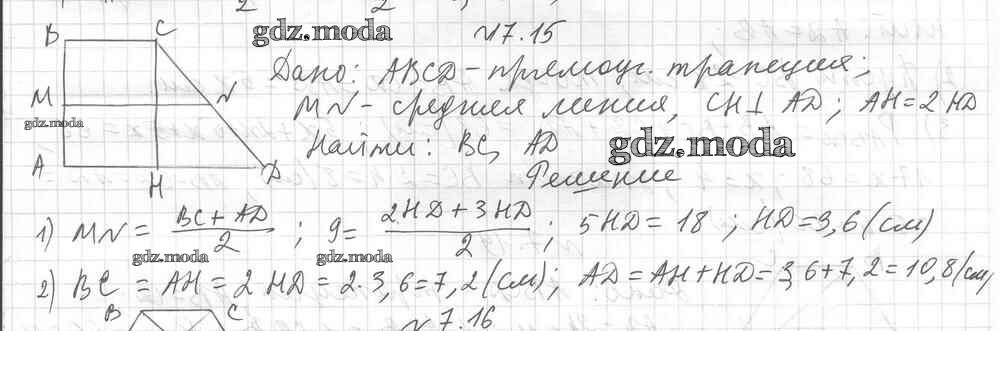 B C gdz.moda №17.15
Дано: ABCD - прямоуг. трапеция;
M N MN - средняя линия, CH⊥ AD; AH = 2 HD
gdz.moda
Найти: BC, AD gdz.moda
A H D Решение
1) MN = BC + AD / 2 ; 9 = 2HD + 3HD / 2 ; 5HD = 18; HD = 3,6 (см)
gdz.moda gdz.moda
2) BC = AH = 2 HD = 2·3,6 = 7,2 (см); AD = AH + HD = 3,6 + 7,2 = 10,8 (см)
B C №7.16
gdz.moda gdz.moda